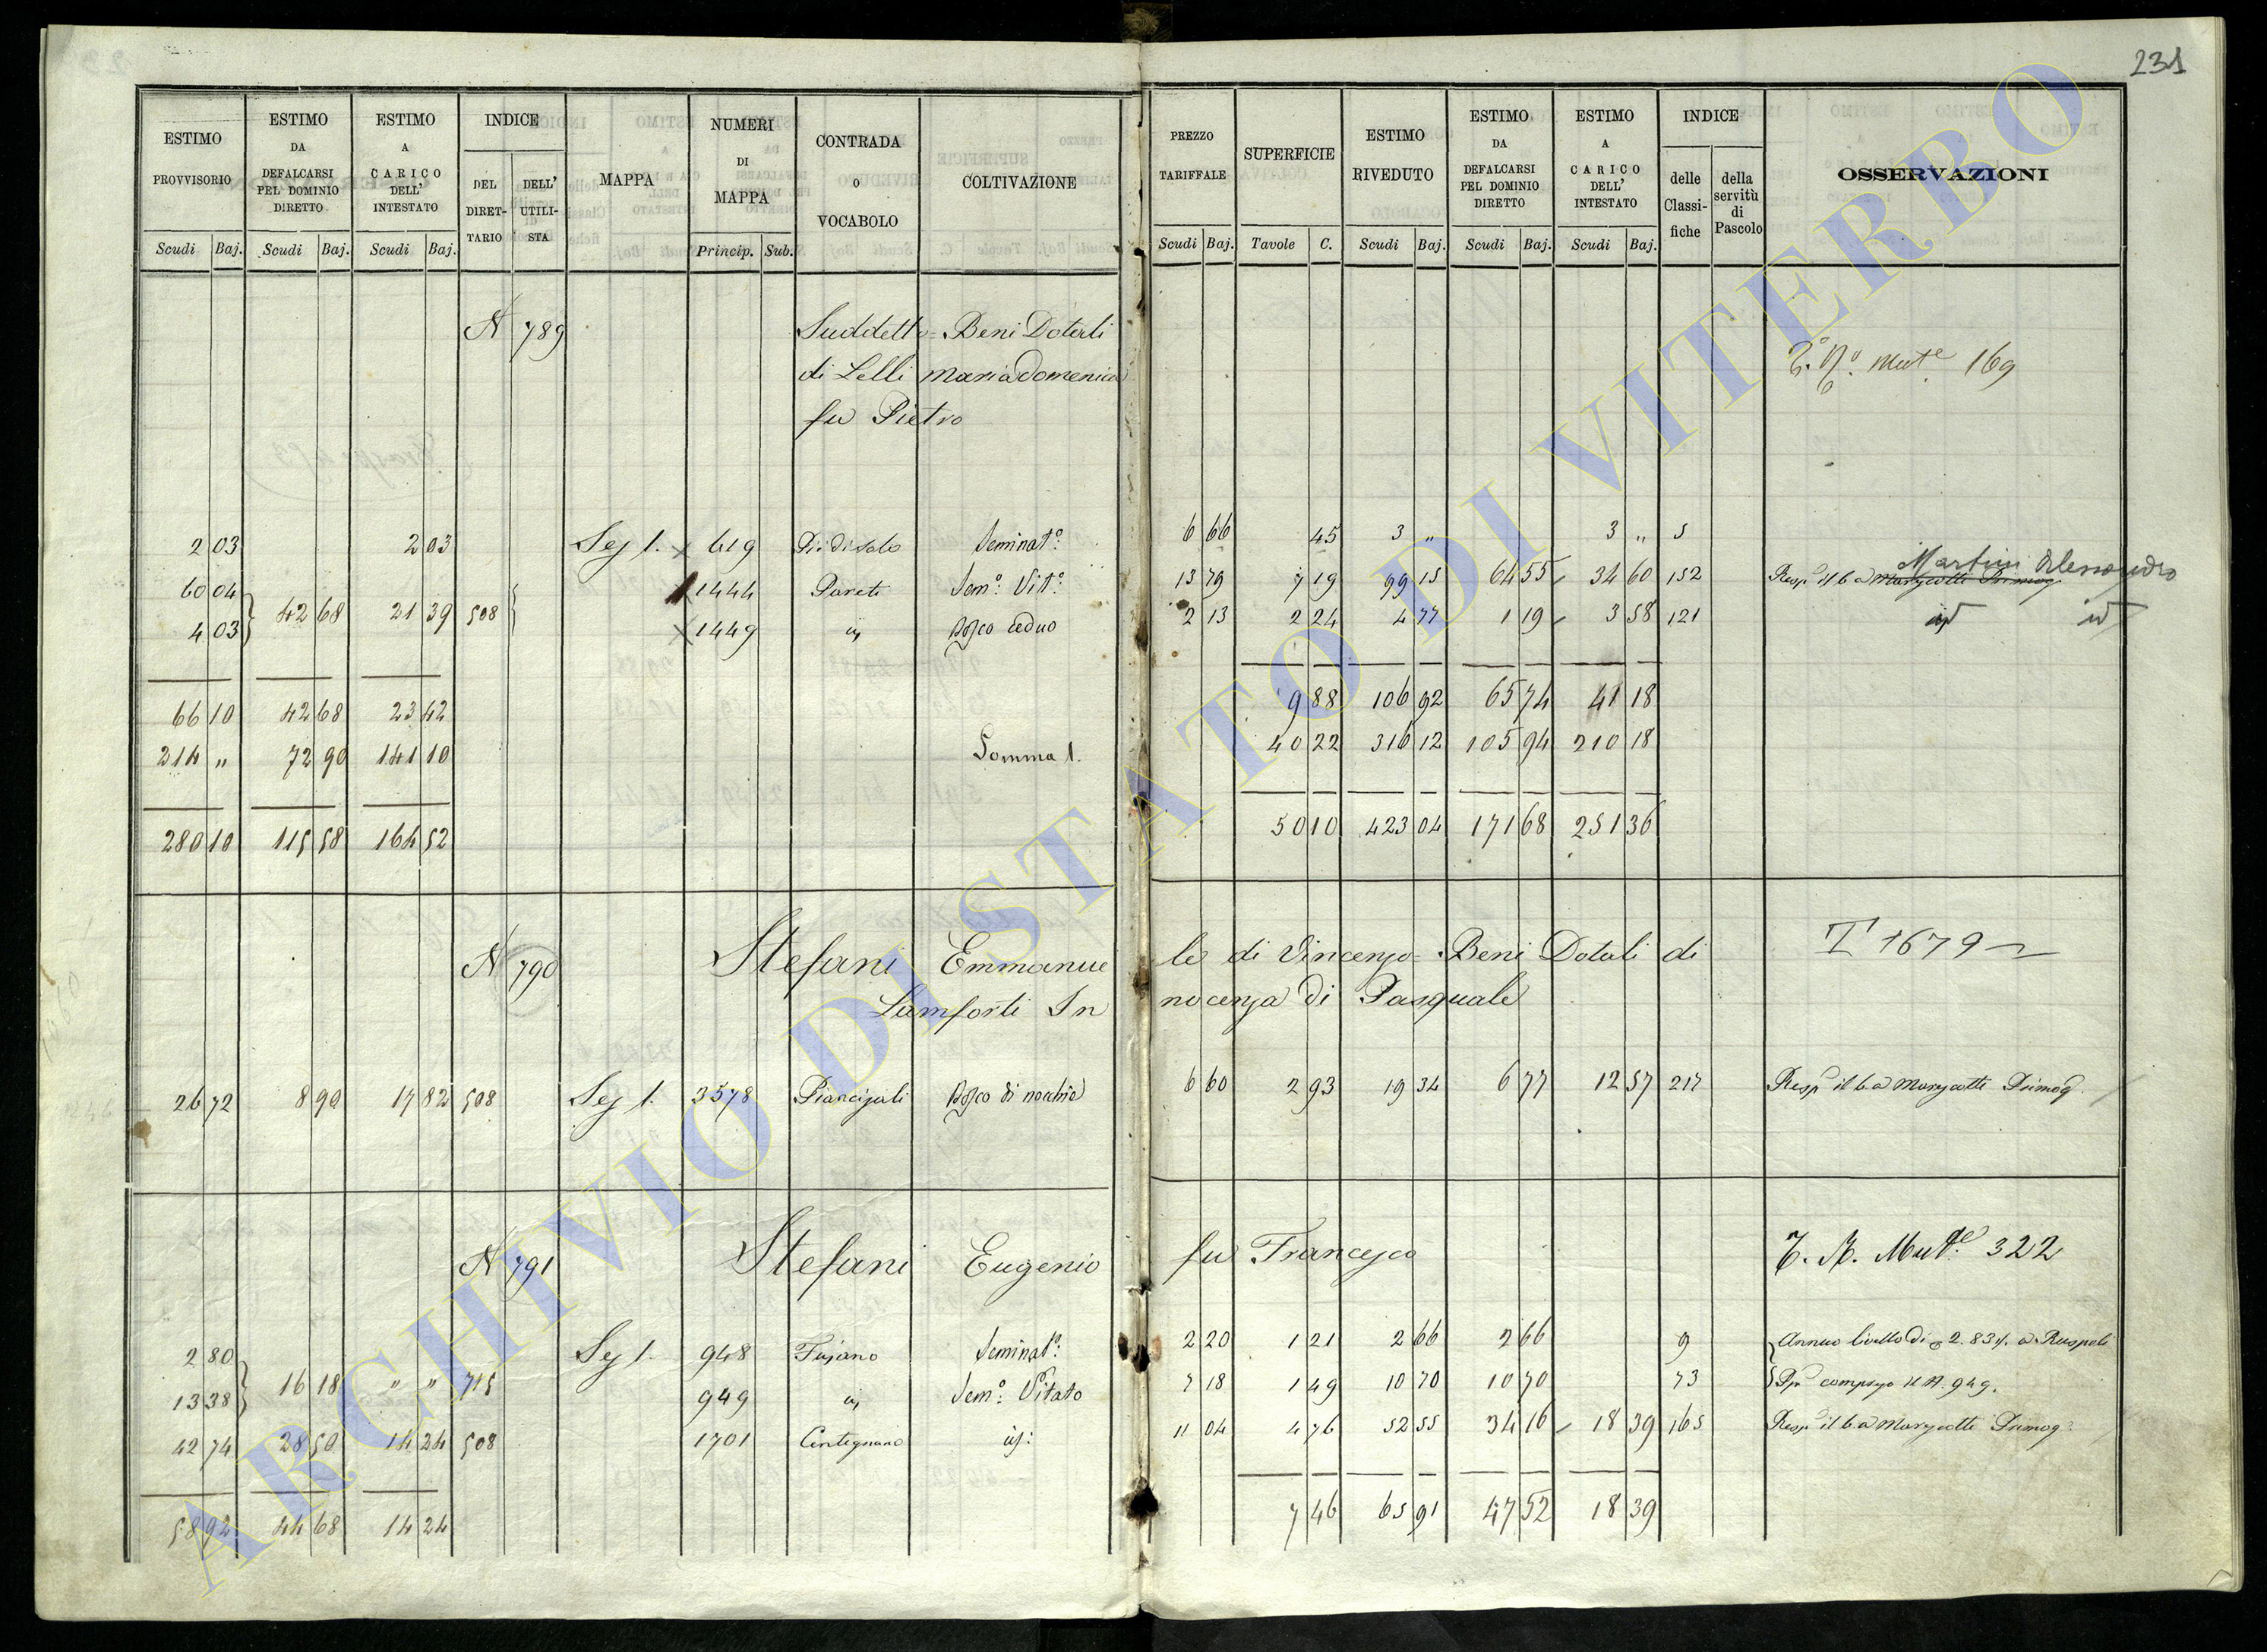 231
ESTIMO PROVVISORIO | ESTIMO DA DEFALCARSI PEL DOMINIO DIRETTO | ESTIMO A CARICO DELL' INTESTATO | INDICE | MAPPA | NUMERI DI MAPPA | CONTRADA O VOCABOLO | COLTIVAZIONE | PREZZO TARIFFALE | SUPERFICIE | ESTIMO RIVEDUTO | ESTIMO DA DEFALCARSI PEL DOMINIO DIRETTO | ESTIMO A CARICO DELL' INTESTATO | INDICE | OSSERVAZIONI
DEL DIRETTARIO | DELL' UTILISTA | delle Classifiche | della servitù di Pascolo
Scudi | Baj. | Scudi | Baj. | Scudi | Baj. | Princip. | Sub. | Scudi | Baj. | Tavole | C. | Scudi | Baj. | Scudi | Baj. | Scudi | Baj.
N 789 Suddetto = Beni Dotali
di Lelli Maria Domenica Mut.e 169
fu Pietro
2 03 | 2 03 | Sez 1. | 619 | Seminat.o | 6 66 | 45 | 3 „ | 3 „ | 5
60 04 | 1444 | Parete | Sem.o Vit.o | 13 79 | 7 19 | 99 15 | 64 55 | 34 60 | 152 | Martini Alessandro
42 68 | 21 39 | 508
4 03 | 1449 | Bosco ceduo | 2 13 | 2 24 | 4 77 | 1 19 | 3 58 | 121 | id
66 10 | 42 68 | 23 42 | 9 88 | 106 92 | 65 74 | 41 18
214 „ | 72 90 | 141 10 | Somma 1. | 40 22 | 316 12 | 105 94 | 210 18
280 10 | 115 58 | 164 52 | 50 10 | 423 04 | 171 68 | 251 36
N 790 Stefani Emmanuele di Vincenzo = Beni Dotali di T 1679
Lamforti Innocenza di Pasquale
26 72 | 8 90 | 17 82 | 508 | Sez 1. | 3578 | Bosco di nocchie | 6 60 | 2 93 | 19 34 | 6 77 | 12 57 | 217
N 791 Stefani Eugenio fu Francesco Mut.e 322
2 80 | Sez 1. | 948 | Fajano | Seminat.o | 2 20 | 1 21 | 2 66 | 2 66 | 9 | Annuo livello di 2.83 a Ruspoli
16 18 | „ „ | 715
13 38 | 949 | Sem.o Vitato | 7 18 | 1 49 | 10 70 | 10 70 | 73 | compreso il N. 949.
42 74 | 28 50 | 14 24 | 508 | 1701 | Centignano | 11 04 | 4 76 | 52 55 | 34 16 | 18 39 | 165
58 92 | 44 68 | 14 24 | 7 46 | 65 91 | 47 52 | 18 39
ARCHIVIO DI STATO DI VITERBO